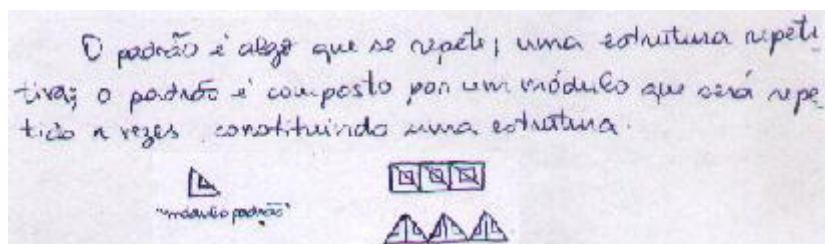 O padrão é algo que se repete; uma estrutura repeti
tiva; o padrão é composto por um módulo que será repe-
tido n vezes constituindo uma estrutura.
"módulo padrão"